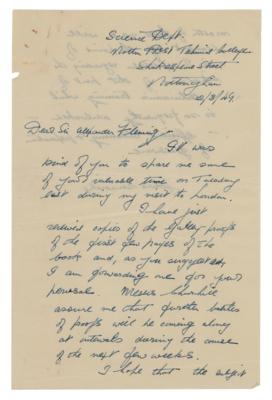 Science Dept.
Nottm Technical College
Shakespeare Street
Nottingham
2/3/49.
Dear Sir Alexander Fleming
It was
kind of you to spare me some
of your valuable time on Tuesday
last during my visit to London.
I have just
received copies of the Galley proofs
of the first few pages of the
book and, as you suggested,
I am forwarding one for your
perusal. Messrs Churchill
assure me that further batches
of proofs will be coming along
at intervals during the course
of the next few weeks.
I hope that the subject